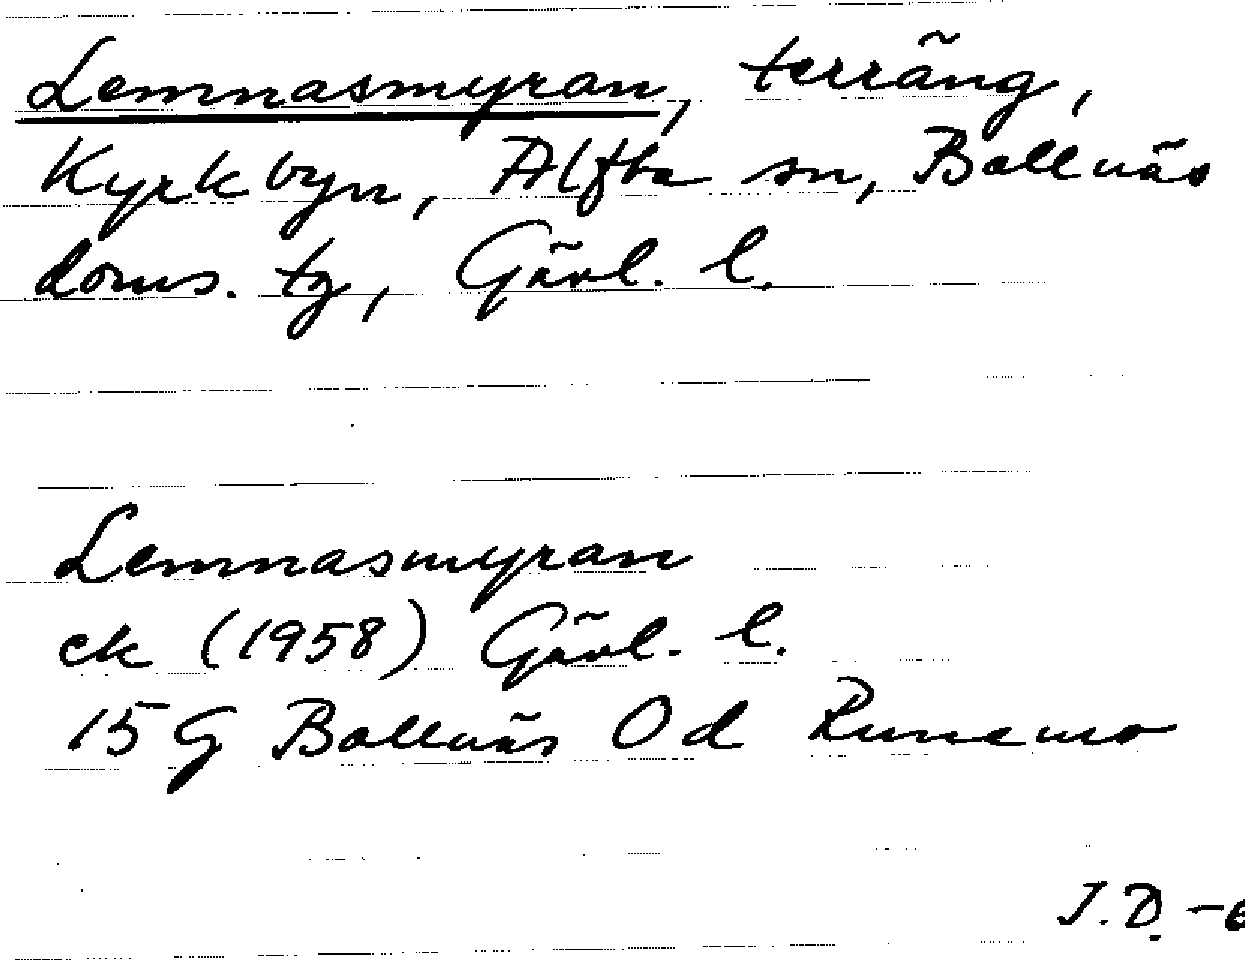 Lemnasmyran, terräng,
Kyrkbyn, Alfta sn, Bollnäs
doms. tg, Gävl. l.
Lemnasmyran
ek (1958) Gävl. l.
15 G Bollnäs 0 d Runemo
J.D.